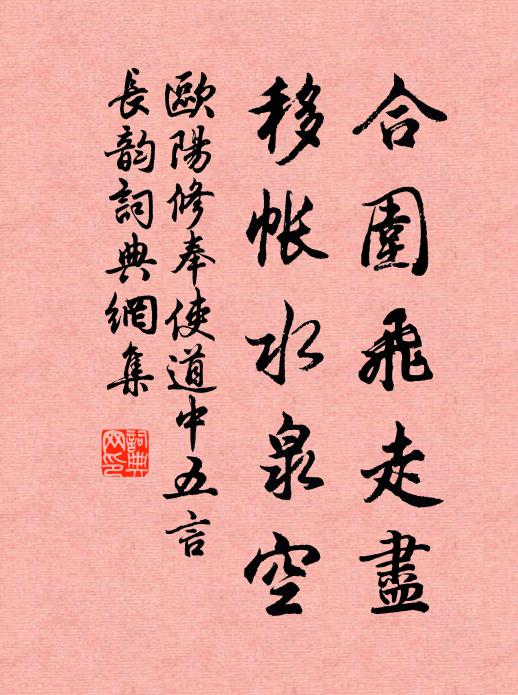 合圍飛走盡
移帐水泉空
歐陽修奉使道中五言
長韵詞典網集
詞典
网印